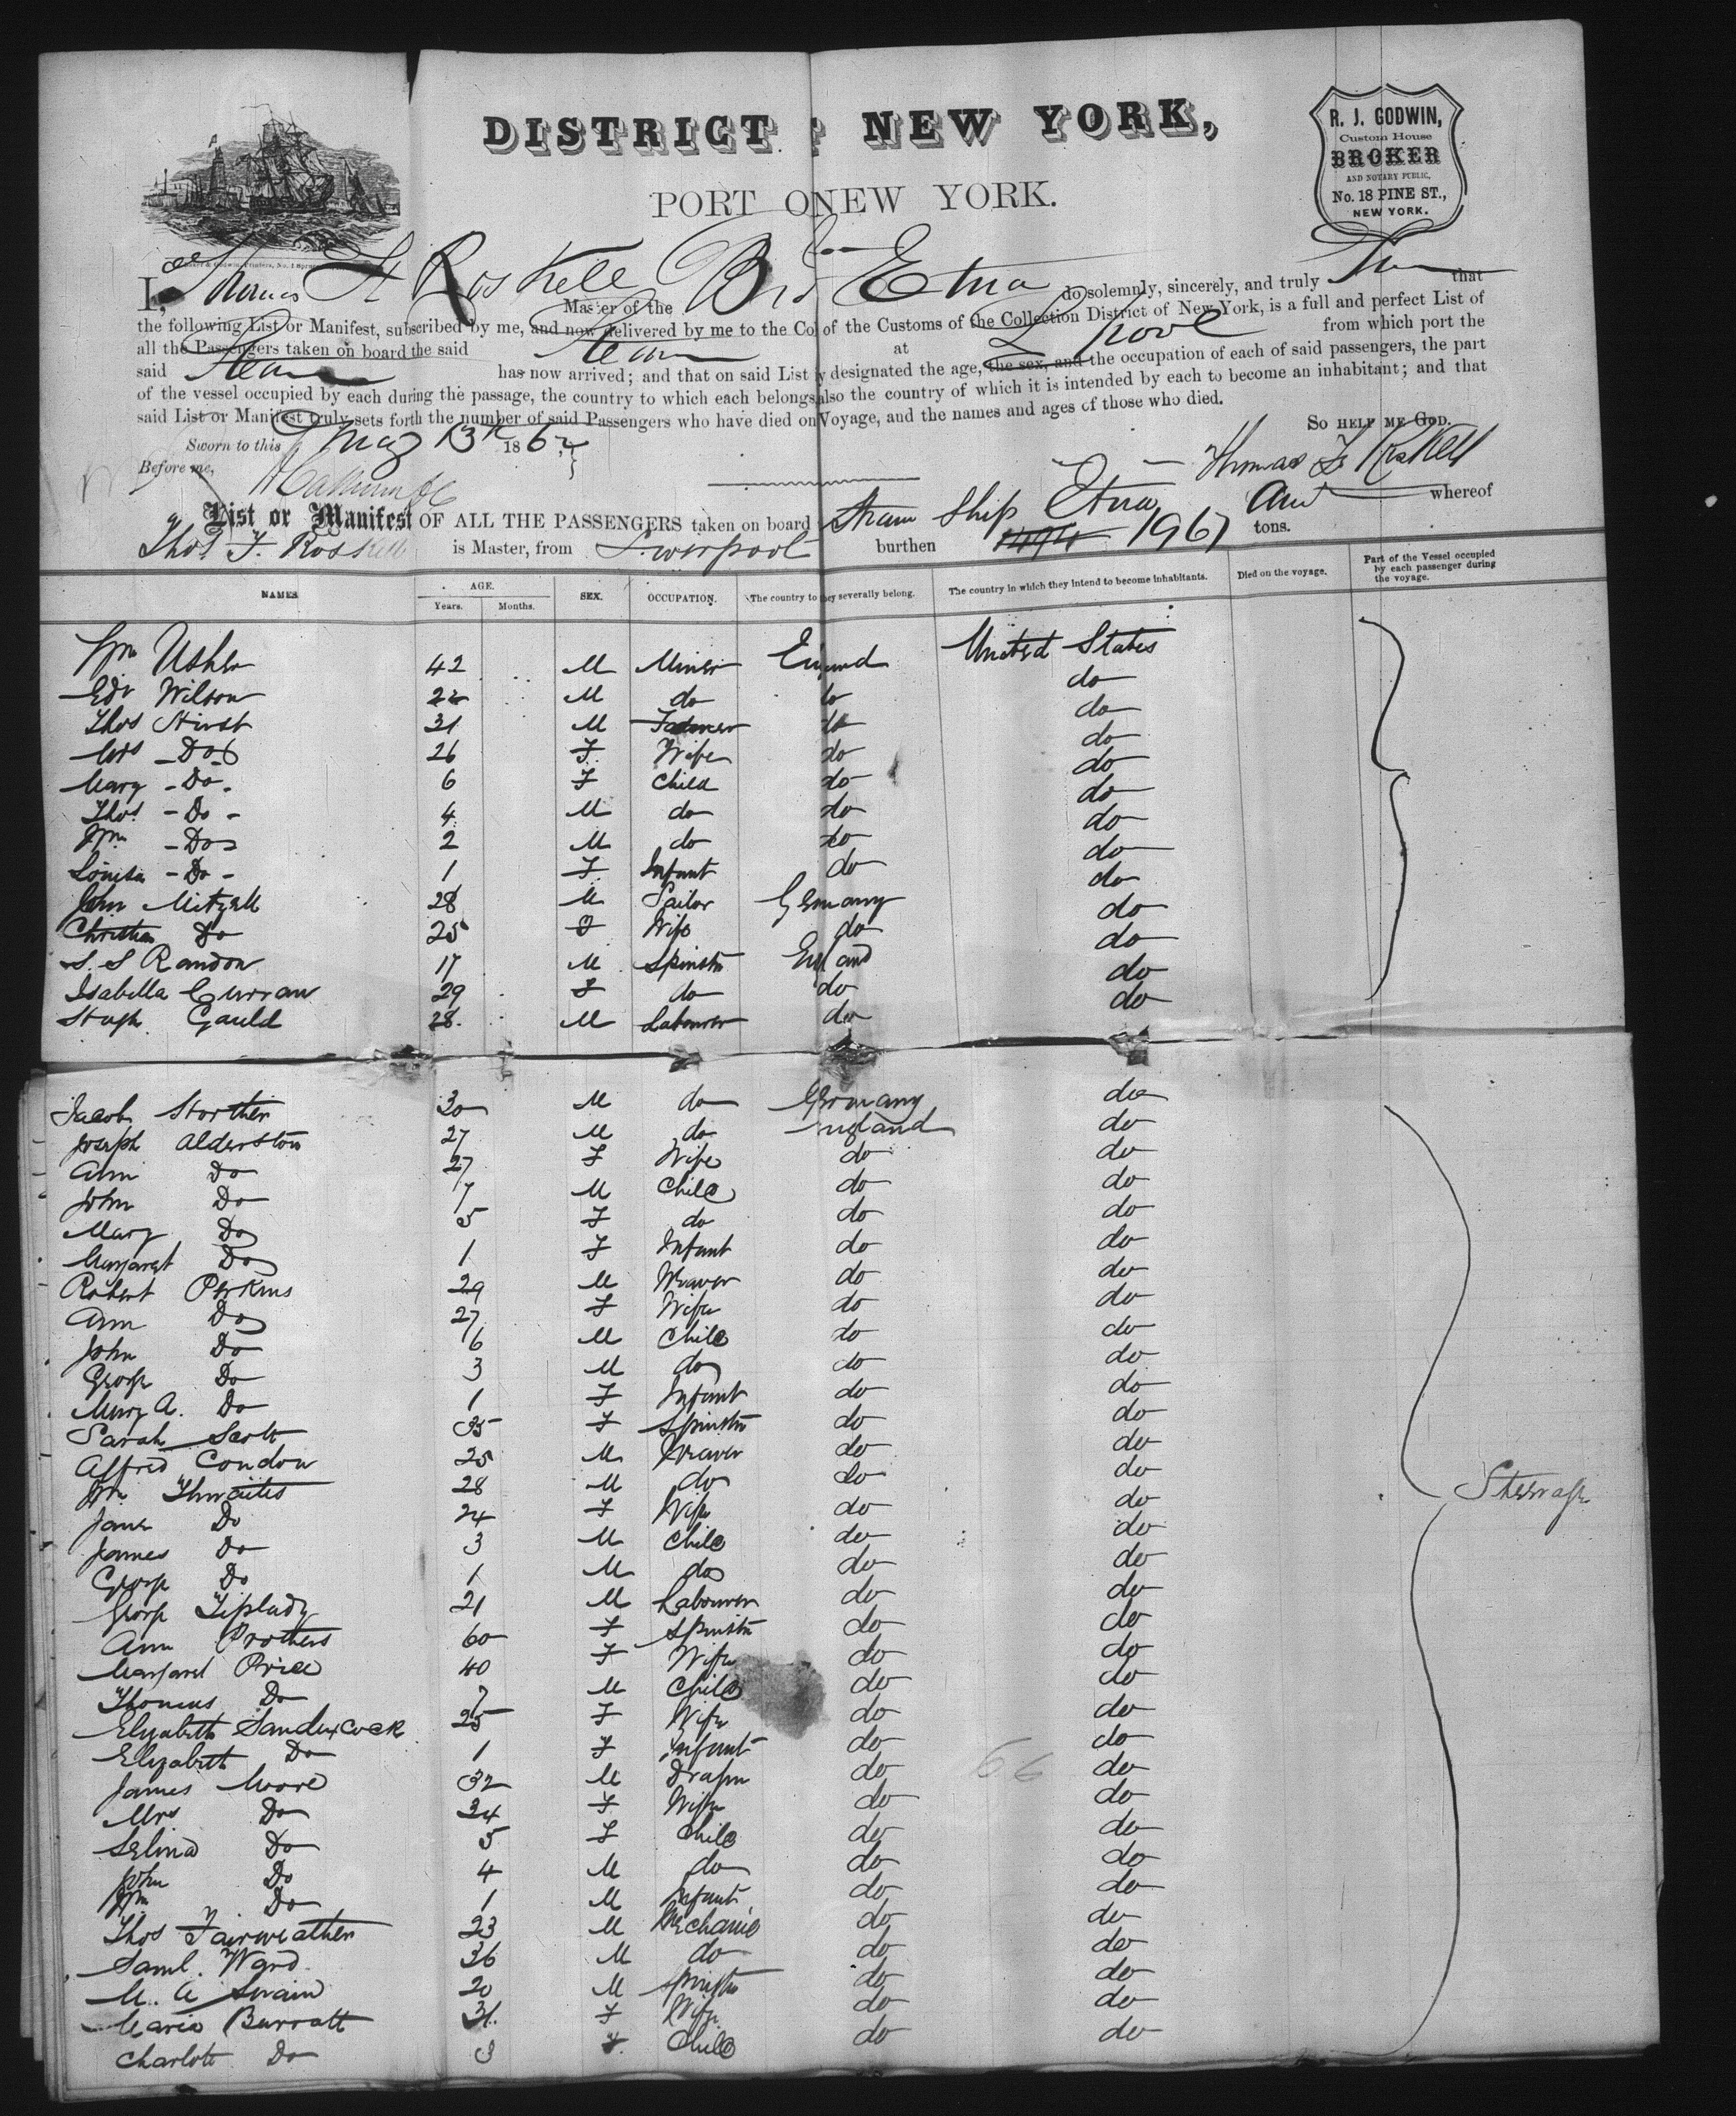 DISTRICT NEW YORK,
PORT O NEW YORK.
R. J. GODWIN,
Custom House
BROKER
AND NOTARY PUBLIC,
No. 18 PINE ST.,
NEW YORK.
I, Thomas Roskell Master of the Etna do solemnly, sincerely, and truly that
the following List or Manifest, subscribed by me, and now delivered by me to the Co of the Customs of the Collection District of New York, is a full and perfect List of
all the Passengers taken on board the said at L'pool from which port the
said has now arrived; and that on said List designated the age, the sex, and the occupation of each of said passengers, the part
of the vessel occupied by each during the passage, the country to which each belongs, also the country of which it is intended by each to become an inhabitant; and that
said List or Manifest truly sets forth the number of said Passengers who have died on Voyage, and the names and ages of those who died.
SO HELP ME GOD.
Sworn to this May 13th 186
Before me,
List or Manifest OF ALL THE PASSENGERS taken on board Steam Ship Etna whereof
Thos F. Roskell is Master, from Liverpool burthen 1494 1967 tons.
NAMES AGE. Years. Months. SEX. OCCUPATION. The country to they severally belong. The country in which they intend to become inhabitants. Died on the voyage. Part of the Vessel occupied by each passenger during the voyage.
Wm Usher 42 M Miner England United States
Edw Wilson 22 M do do do
Thos Hirst 31 M do do
Mrs Do 26 F Wife do do
Mary Do 6 F Child do do
Thos Do 4 M do do do
Wm Do 2 M do do do
Louisa Do 1 F Infant do do
John Mitzell 28 M Sailor Germany do
Christian Do 25 F Wife do do
S. S Randon 17 M Spinstr England do
Isabella Curran 29 F do do do
Hugh Gauld 28 M Labourer do do
Jacob Storther 30 M do Germany do
Joseph Alderston 27 M do England do
Ann Do 27 F Wife do do
John Do 7 M Child do do
Mary Do 5 F do do do
Margaret Do 1 F Infant do do
Robert Perkins 29 M Weaver do do
Ann Do 27 F Wife do do
John Do 6 M Child do do
George Do 3 M do do do
Mary A. Do 1 F Infant do do
Sarah Scott 35 F Spinstr do do
Alfred Condon 25 M Weaver do do
Wm Thwaites 28 M do do do Steerage
Jane Do 24 F Wife do do
James Do 3 M Child do do
George Do 1 M do do do
George Tiplady 21 M Labourer do do
Ann Prothers 60 F Spinstr do do
Margaret Price 40 F Wife do do
Thomas Do 7 M Child do do
Elizabeth 25 F Wife do do
Elizabeth Do 1 F Infant do do
James Moore 32 M Draper do 66 do
Mrs Do 24 F Wife do do
Selina Do 5 F Child do do
John Do 4 M do do do
Wm Do 1 M Infant do do
Thos Fairweather 23 M Mechanic do do
Saml. Ward 36 M do do do
M. A Swain 20 M Spinstr do do
Maria Barratt 31 F Wife do do
Charlott Do 3 F Child do do